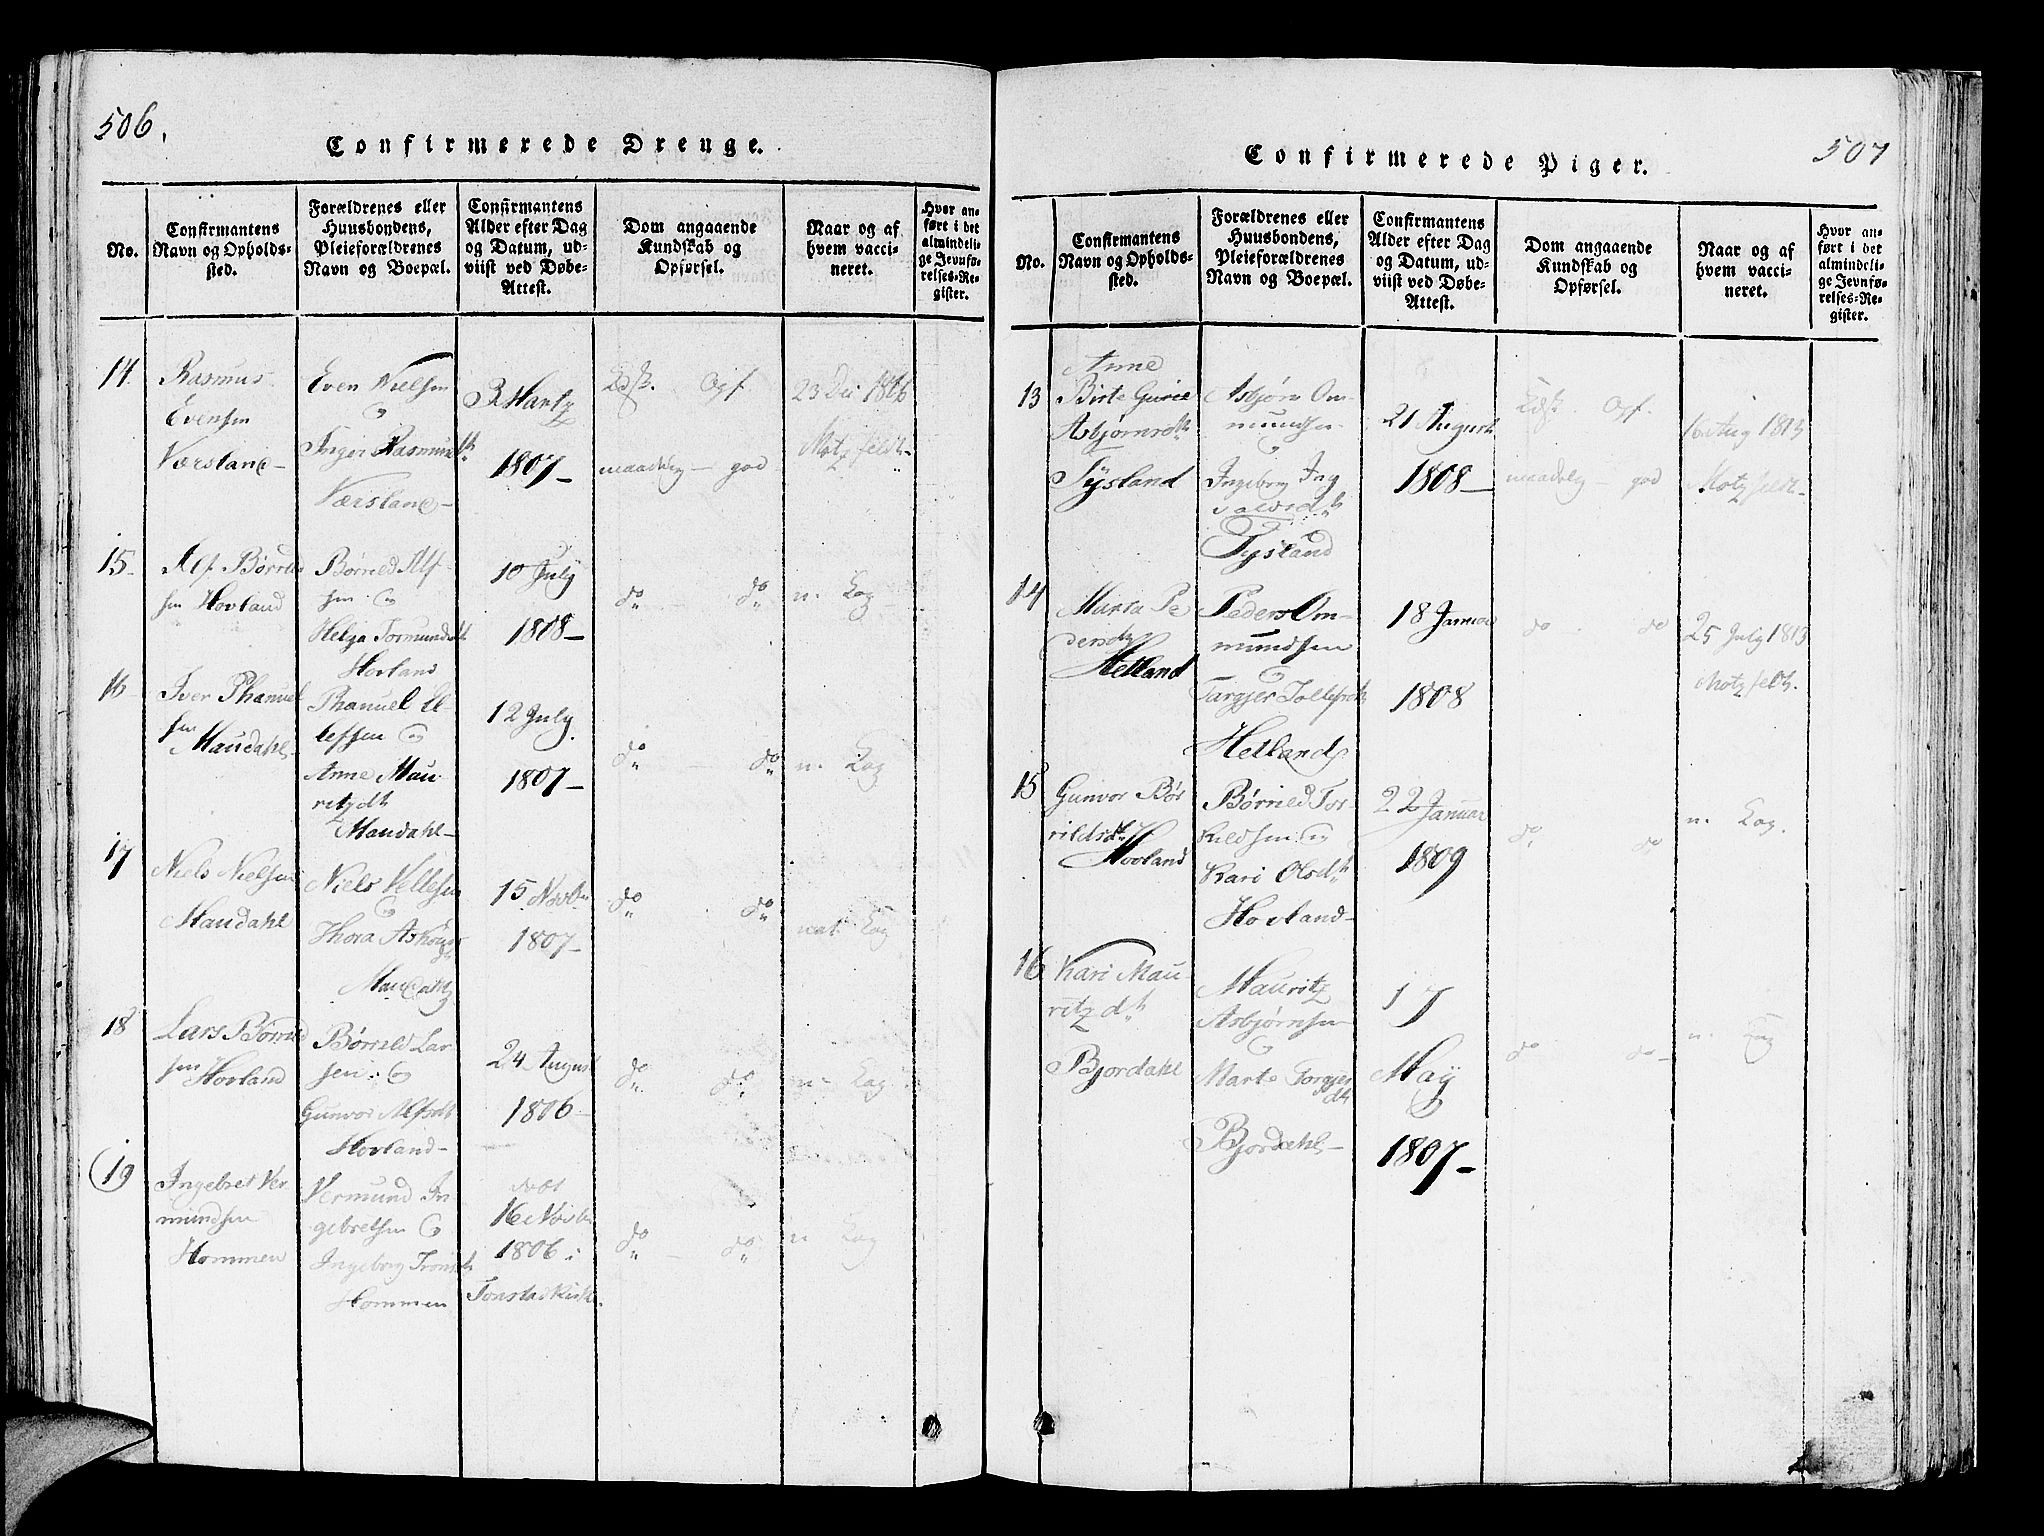 506.
Confirmerede Drenge.
No.
Confirmantens
Navn og Opholds-
sted.
Forældrenes eller
Huusbondens,
Pleieforældrenes
Navn og Boepæl.
Confirmantens
Alder efter Dag
og Datum, ud-
viist ved Døbe-
Attest.
Dom angaaende
Kundskab og
Opførsel.
Naar og af
hvem vacci-
neret.
Hvor an-
ført i det
almindeli-
ge Jevnfø-
relses-Re-
gister.
14.
Rasmus
Evensen
Værsland-
Even Nielsen
og
Inger Rasmusdt
Værsland-
Martz
1807-
maadelig - god
23 Dec 1816
Motzfeldt-
15-
Alf Børrild
sen Hovland
Børrild Alf
sen og
Helga Tormundsdt
Hovland
10 July
1808-
do - do
n. Kog
16
Iver Phanuel
sen
Maudahl-
Phanuel El-
lefsen og
Anne Mau-
ritz dt
Maudahl-
12 July.
1807-
do - do
n. Kog
17
Niels Nielsen
Maudahl
Niels
og
Thora
15 Novbr
1807-
do do
nat. Kog
18
Lars Børrild
sen Hovland
Børrild Lar-
sen og
Gunvor Alfsdt
Hovland-
24 August
1806-
do do
n- Kog
19
Ingebret Ver
mundsen
Hommen
Vermund In
gebretsen og
Ingeborg
Hommen
døbt
16 Novbr
1806 i
Tonstad Kirke.
do - do
n Kog
507
Confirmerede Piger.
No.
Confirmantens
Navn og Opholds-
sted.
Forældrenes eller
Huusbondens,
Pleieforældrenes
Navn og Boepæl.
Confirmantens
Alder efter Dag
og Datum, ud-
viist ved Døbe-
Attest.
Dom angaaende
Kundskab og
Opførsel.
Naar og af
hvem vacci-
neret.
Hvor an-
ført i det
almindeli-
ge Jevnfø-
relses-Re-
gister.
13
Anne
Birte Gurie
Asbjørnsdt
Tysland
Asbjørn Om-
mundsen
og
Ingeborg
Tysland
21 August
1808-
maadelig - god
16 Aug 1813
Motzfeldt-
14
Marta Pe
dersdt
Helland
Peder Om-
mundsen
og
Targjer Tollefsdt
Helland
18 Januar
1808
do do
25 July 1813
Motzfeldt.
15
Gunvor Bør
rildsdt
Hovland
Børrild Tor
kildsen og
Kari Olsdt
Hovland-
22 Januar
1809
do do
n. Kog.
16
Kari Mau
ritz dt
Bjordahl
Mauritz
Asbjørnsen
og
Marte Torgjer
dt
Bjordahl-
17
May
1807-
do do-
n. Kog